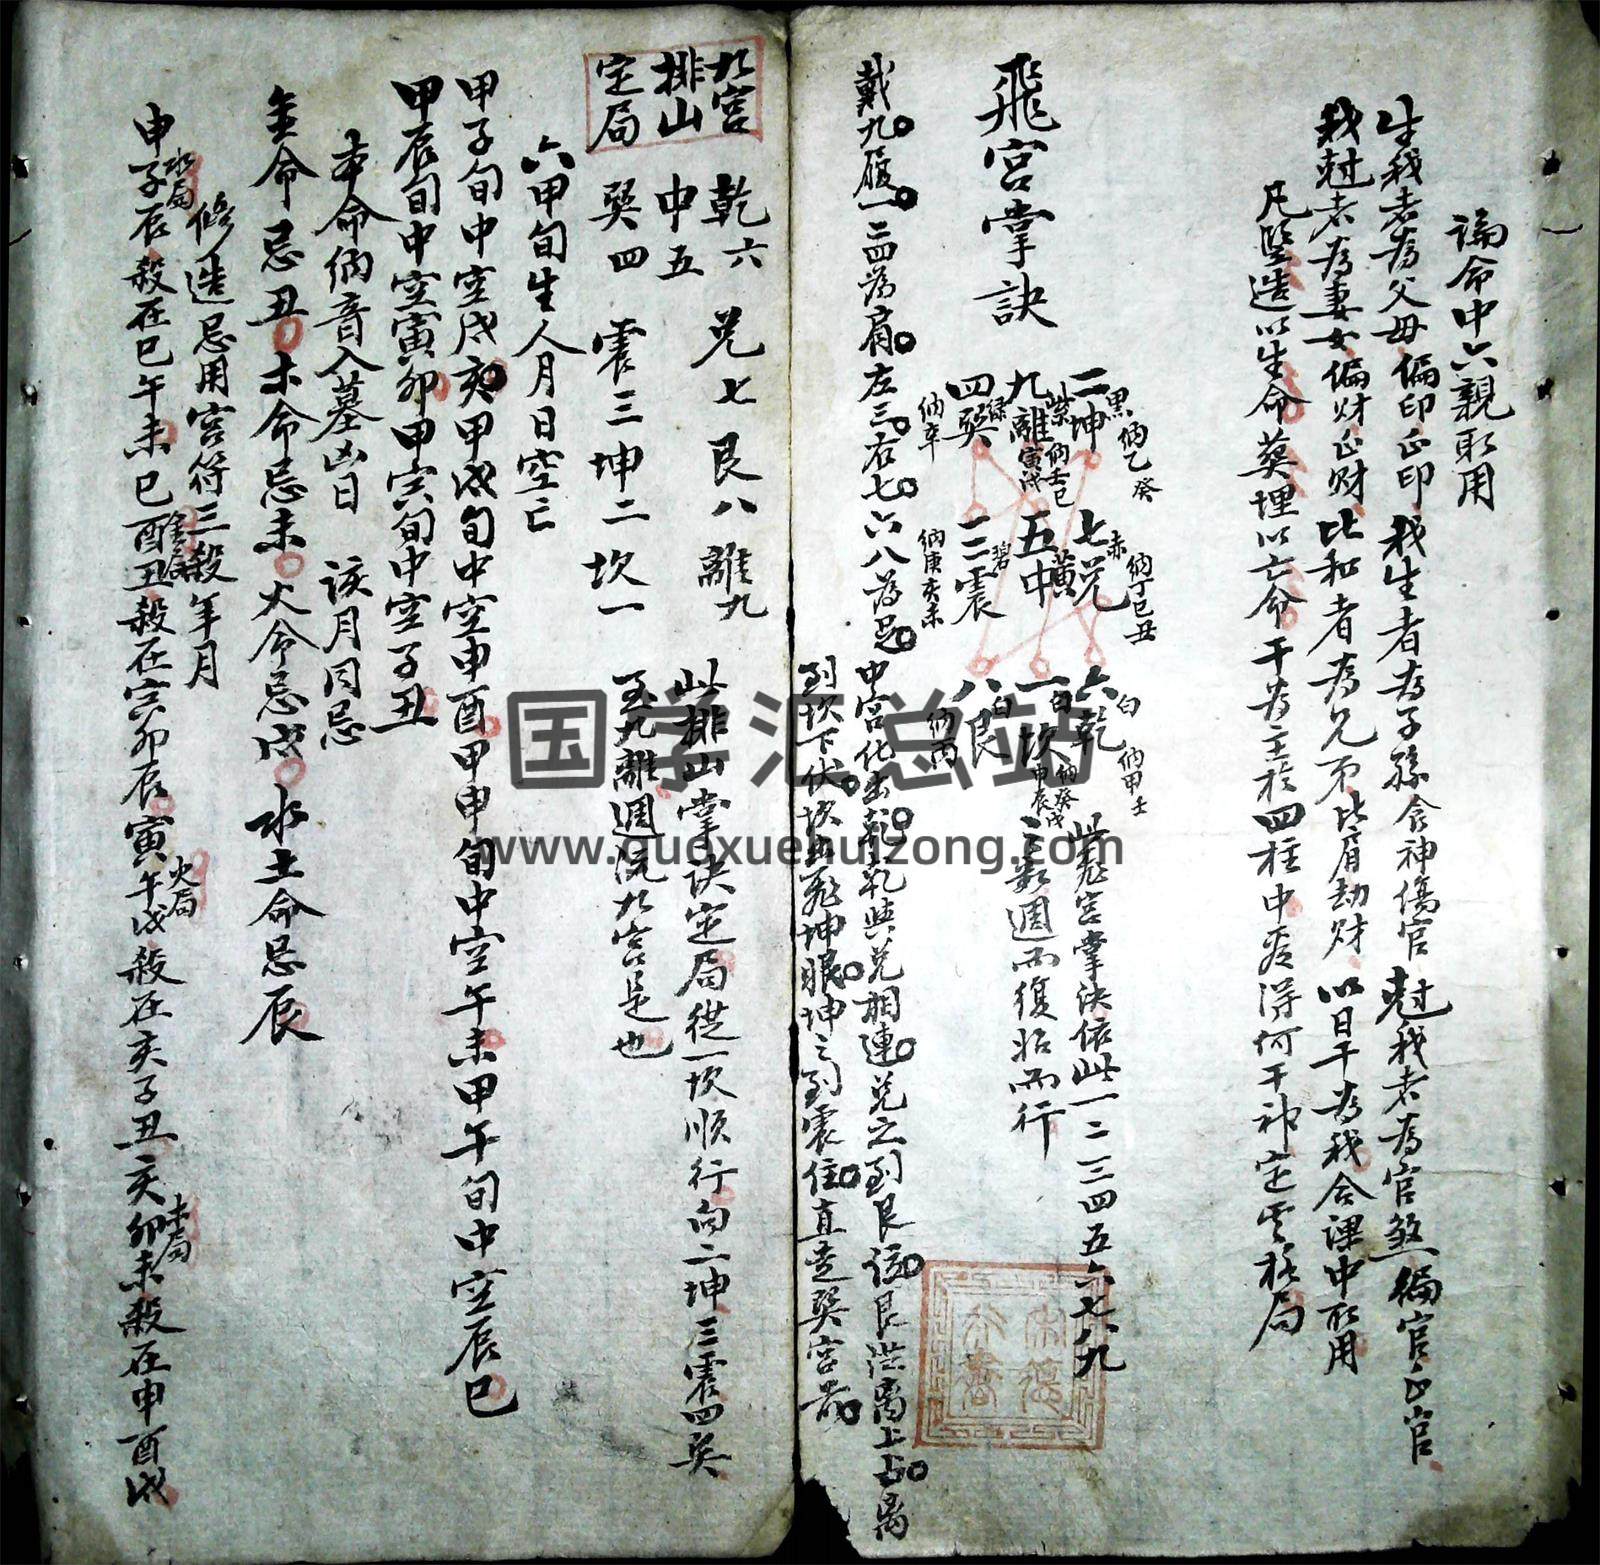 論命中六親取用
生我者為父母偏印正印我生者為子孫食神傷官尅我者為官煞偏官正官
我尅者為妻女偏財正財比和者為兄弟比肩劫財以日干為我合課中取用
凡竪造以生命葬埋以亡命干為主於四柱中看得何干神定格局
飛宮掌訣
二坤 黑 納乙癸
七兌 赤 納丁巳丑
六乾 白 納甲壬
九離 紫 納壬 寅戌
五中 黃
一坎 白 納癸 申辰
四巽 綠 納辛
三震 碧 納庚亥未
八艮 白 納丙
此飛宮掌決依此一二三四五六七八九
之數週而復始而行
戴九履一二四為肩左三右七六八為足
中宮化出乾乾與兌相連兌之到艮位艮 離上占離
到坎下伏坎出飛坤眼坤之到震住直走巽宮
九宮
排山
定局
乾六 兌七 艮八 離九
中五
巽四 震三 坤二 坎一
此排山掌決定局從一坎順行向二坤三震四巽
至九離週流九宮是也
六甲旬生人月日空亡
甲子旬中空戌亥甲戌旬中空申酉甲申旬中空午未甲午旬中空辰巳
甲辰旬中空寅卯甲寅旬中空子丑
本命納音入墓凶日 該月同忌
金命忌丑木命忌未火命忌戌水土命忌辰
修造忌用宮符三殺年月
申子辰 水局 殺在巳午未巳酉丑 金局 殺在寅卯辰寅午戌 火局 殺在亥子丑亥卯未 木局 殺在申酉戌
国学汇总站
www.guoxuehuizong.com